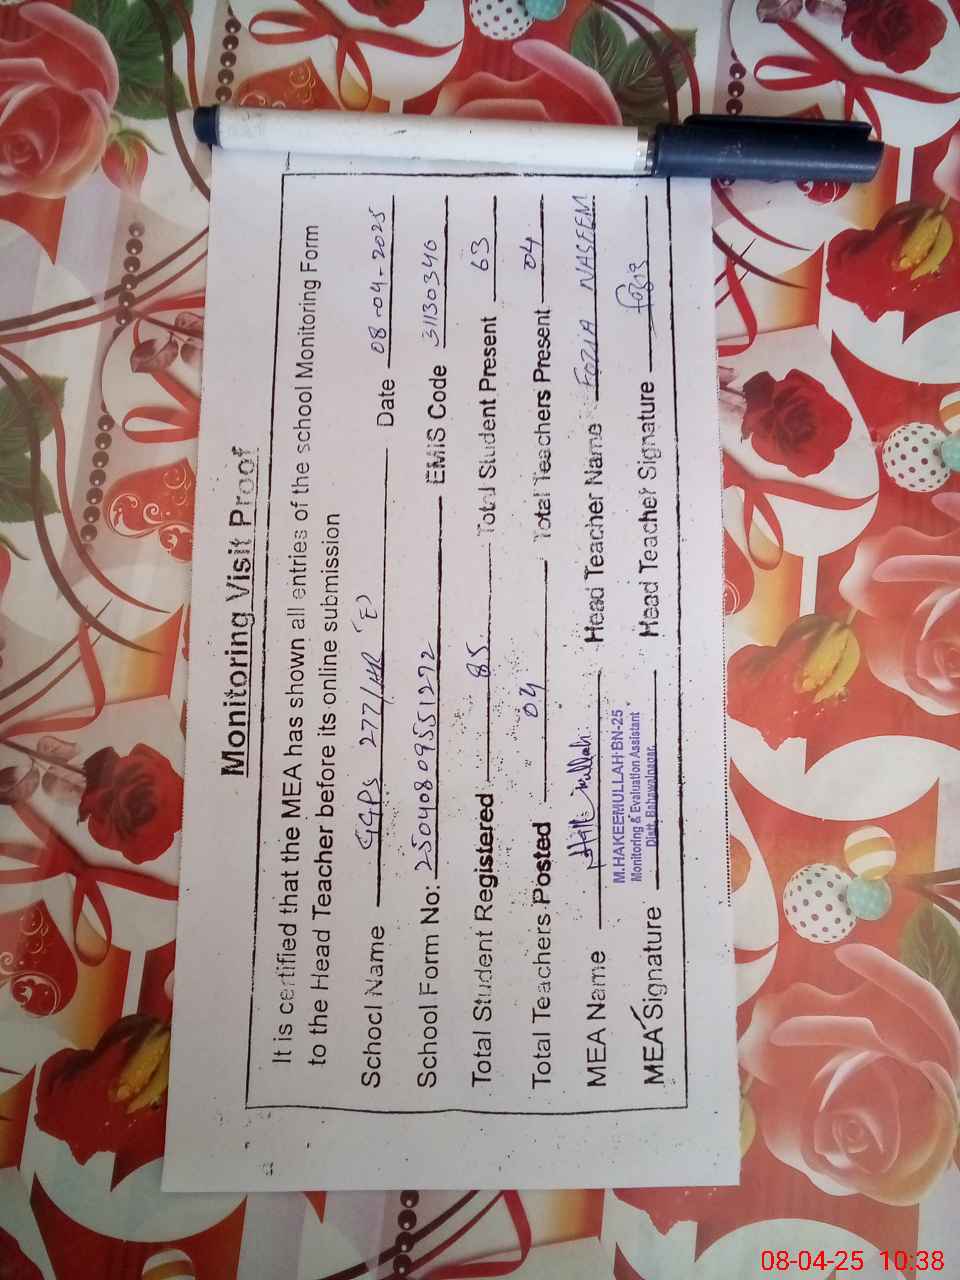 Monitoring Visit Proof
It is certified that the MEA has shown all entries of the school Monitoring Form
to the Head Teacher before its online submission
School Name GGPS 277/HR (E) Date 08-04-2025
School Form No: 250408 0955 1272 EMIS Code 31130340
Total Student Registered 85 Total Student Present 63
Total Teachers Posted 04 Total Teachers Present 04
MEA Name Head Teacher Name FOZIA NASEEM
M.HAKEEMULLAH-BN-25
Monitoring & Evaluation Assistant
Distt. Bahawalnagar.
MEA Signature Head Teacher Signature
08-04-25 10:38